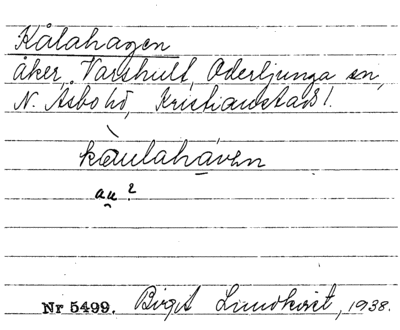 Kålahagen
åker, Varshult, Oderljunga sn,
N. Åsbo hd, Kristianstads l.
kàulaháven
au ?
Nr 5499. Birgit Lundkvist, 1938.